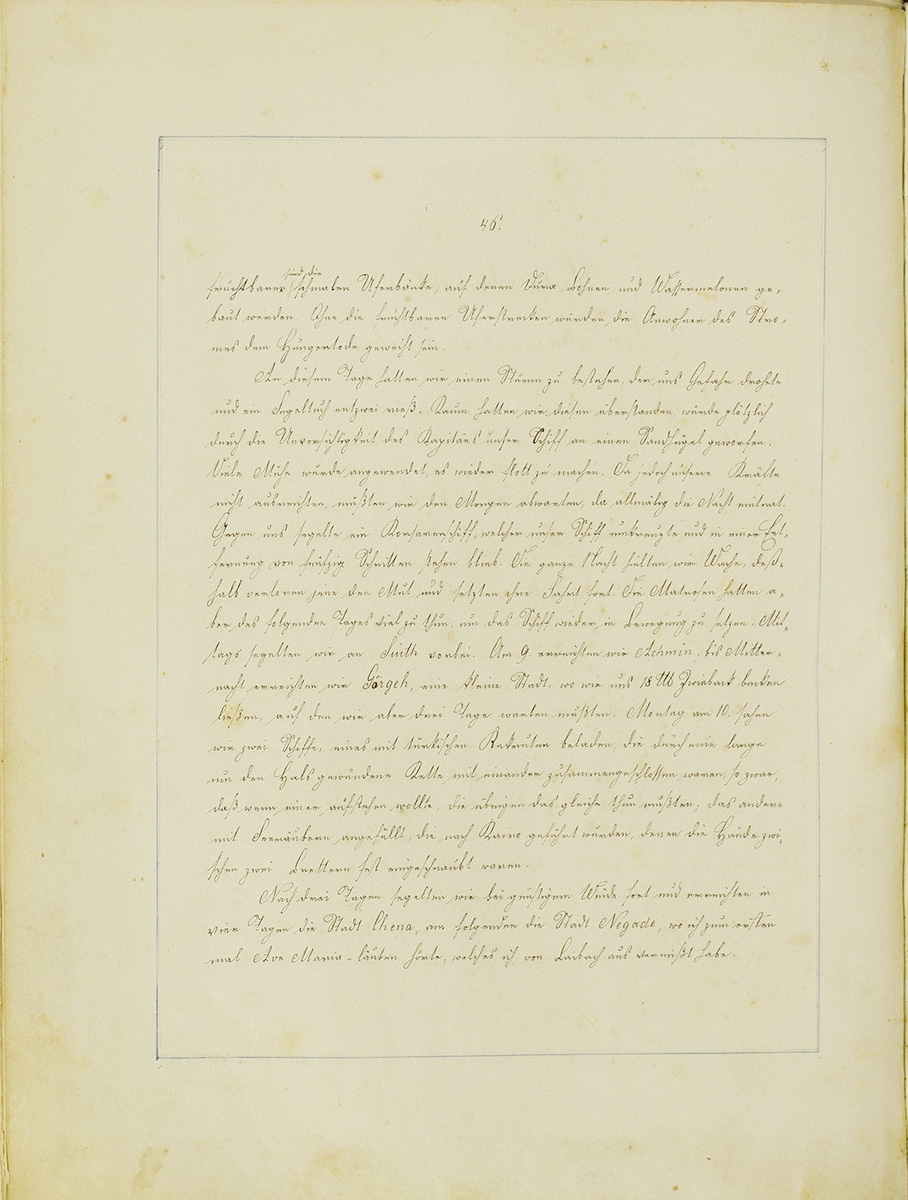 46.
sind, die
fruchtbaren schmalen Uferbänke, auf denen Dura, Bohnen und Wassermelonen ge-
baut werden. Ohne die fruchtbaren Uferstrecken würden die Anwohner des Stro-
mes dem Hungertode geweiht sein.
An diesem Tage hatten wir einen Sturm zu bestehen, der uns Gefahr drohte
und ein Segeltuch entzwei rieß. Kaum hatten wir diesen überstanden, wurde plötzlich
durch die Unvorsichtigkeit des Kapitäns unser Schiff an einen Sandhügel geworfen.
Viele Mühe wurde angewendet, es wieder flott zu machen. Da jedoch unsere Kräfte
nicht ausreichten, mußten wir den Morgen abwarten, da allmälig die Nacht eintrat.
Gegen uns segelte ein Korsarenschiff, welches unser Schiff umkreuzte und in einer Ent-
fernung von fünfzig Schritten stehen blieb. Die ganze Nacht hielten wir Wache, deß-
halb verloren jene den Mut und setzten ihre Fahrt fort. Die Matrosen hatten a-
ber des folgenden Tages viel zu thun, um das Schiff wieder in Bewegung zu setzen. Mit-
tags segelten wir an Siuth vorbei. Am 9. erreichten wir Achmin, bis Mitter-
nacht erreichten wir Görgeh, eine kleine Stadt, wo wir uns 18 Zwieback backen
ließen, auf den wir aber drei Tage warten mußten. Montag am 10. sahen
wir zwei Schiffe, eines mit türkischen Rekruten beladen die durch eine lange
um den Hals gewundene Kette mit einander zusammengeschlossen waren, so zwar,
daß wenn einer aufstehen wollte, die übrigen das gleiche thun mußten; das andere
mit Seeräubern angefüllt, die nach Kairo geführt wurden, denen die Hände zwi-
schen zwei Brettern fest eingeschraubt waren.
Nach drei Tagen segelten wir bei günstigem Winde fort und erreichten in
vier Tagen die Stadt Chena, am folgenden die Stadt Negade, wo ich zum ersten
mal Ave Maria-läuten hörte, welches ich von Laibach aus vermißt habe.